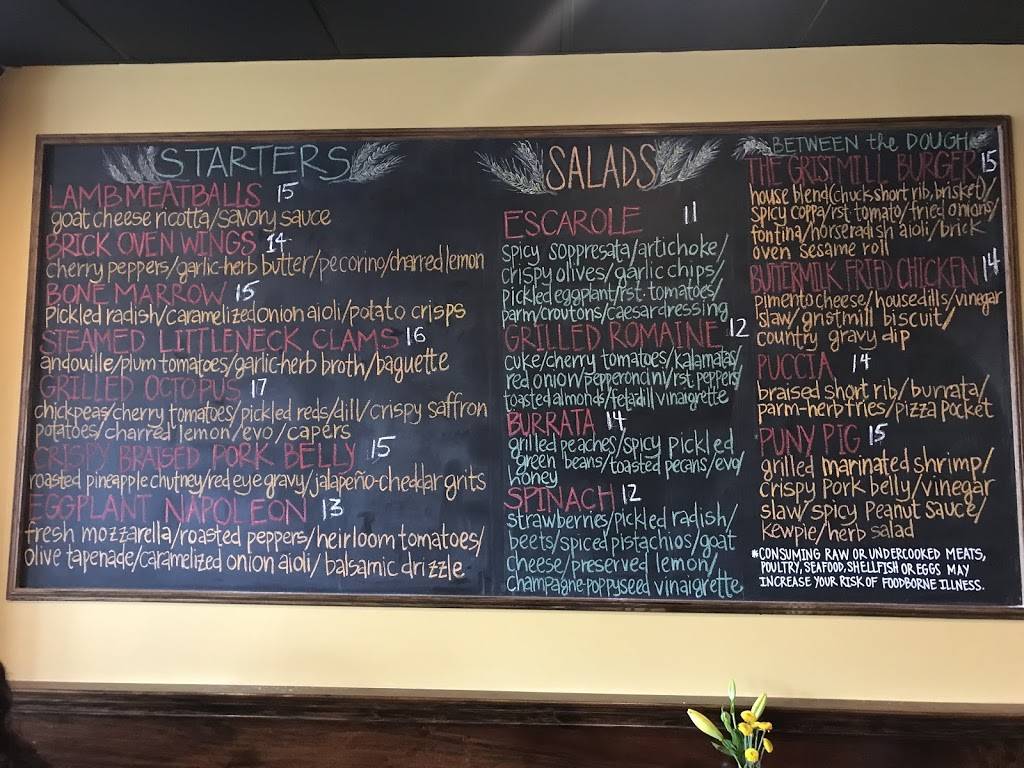 STARTERS
LAMB MEATBALLS 15
goat cheese ricotta/savory sauce
BRICK OVEN WINGS 14
cherry peppers/garlic-herb butter/pecorino/charred lemon
BONE MARROW 15
Pickled radish/caramelized onion aioli/potato crisps
STEAMED LITTLENECK CLAMS 16
andouille/plum tomatoes/garlic-herb broth/baguette
GRILLED OCTOPUS 17
chickpeas/cherry tomatoes/pickled reds/dill/crispy saffron
potatoes/charred lemon/evo/capers
CRISPY BRAISED PORK BELLY 15
roasted pineapple chutney/red eye gravy/jalapeño-cheddar grits
EGGPLANT NAPOLEON 13
fresh mozzarella/roasted peppers/heirloom tomatoes/
olive tapenade/caramelized onion aioli/balsamic drizzle
SALADS
ESCAROLE 11
spicy soppresata/artichoke/
crispy olives/garlic chips/
pickled eggplant/rst. tomatoes/
parm/croutons/caesar dressing
GRILLED ROMAINE 12
cuke/cherry tomatoes/kalamatas/
red onion/pepperoncini/rst. peppers/
toasted almonds/feta dill vinaigrette
BURRATA 14
grilled peaches/spicy pickled
green beans/toasted pecans/evo/
honey
SPINACH 12
strawberries/pickled radish/
beets/spiced pistachios/goat
cheese/preserved lemon/
champagne-poppyseed vinaigrette
BETWEEN the DOUGH
THE GRISTMILL BURGER 15
house blend(chuck,short rib,brisket)/
spicy coppa/rst. tomato/fried onions/
fontina/horseradish aioli/brick
oven sesame roll
BUTTERMILK FRIED CHICKEN 14
pimento cheese/housedills/vinegar
slaw/gristmill biscuit/
country gravy dip
PUCCIA 14
braised short rib/burrata/
parm-herb fries/pizza pocket
PUNY PIG 15
grilled marinated shrimp/
crispy pork belly/vinegar
slaw/spicy peanut sauce/
kewpie/herb salad
*CONSUMING RAW OR UNDERCOOKED MEATS,
POULTRY, SEAFOOD, SHELLFISH OR EGGS MAY
INCREASE YOUR RISK OF FOODBORNE ILLNESS.